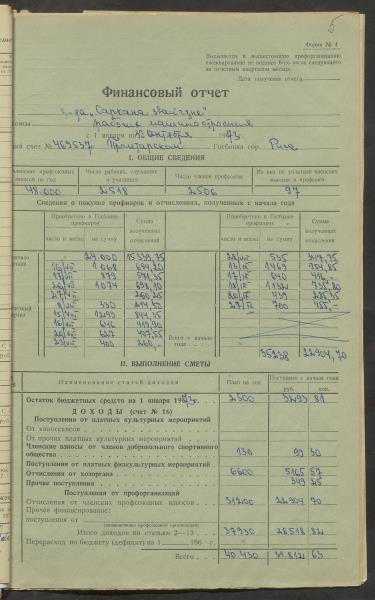 5
Форма № 4
Высылается в вышестоящую профорганизацию
ежеквартально не позднее 6-го числа следующего
за отчетным кварталом месяца.
Дата получения отчета
Финансовый отчет
з-да „Саркана звайгзне"
рабочих машиностроения
с 1 января по 1 октября 1973 г.
счет № 469537 Пролетарском Госбанка гор. Рига
I. ОБЩИЕ СВЕДЕНИЯ
членских профвзносов на год
Число рабочих, служащих и учащихся
Число членов профсоюза
Из них не уплатили членских взносов в профсоюз
48.000 2518 2506 97
Сведения о покупке профмарок и отчислениях, полученных с начала года
Приобретено в Госбанке профмарок
Сумма полученных отчислений
Приобретено в Госбанке профмарок
Сумма полученных отчислений
число и месяц на сумму число и месяц на сумму
24000 15339,75
28/VIII 535 347,75
1068 694,20
13/IX 1469 954,85
17/IX 640 416
1074 698,10
18/IX 1132 735,80
20/IX 439 285,35
27/IX 700 455,-
15/VIII 1299 844,35
16/VIII 646 419,90
20/VIII 627 407,55
23/VIII 400 260,-
Всего с начала года
35238 22904,70
II. ВЫПОЛНЕНИЕ СМЕТЫ
Наименование статей доходов План на год Поступило с начала года
руб. коп.
Остаток бюджетных средств на 1 января 1973 г. 2500 3293 81
ДОХОДЫ (счет № 16)
Поступления от платных культурных мероприятий
От киносеансов
От прочих платных культурных мероприятий
Членские взносы от членов добровольного спортивного
общества 130 99 30
Поступления от платных физкультурных мероприятий
Отчисления от хозоргана 6600 5165 57
Прочие поступления 349 25
Поступления от профорганизаций
Отчисления от членских профсоюзных взносов 31200 22904 70
Прочее финансирование:
поступления от
(наименование профсоюзной организации)
Итого доходов по статьям 2—13 37930 28518 82
Перерасход по бюджету (дефицит) на 1 196 г.
Всего 40.430 31.812 63